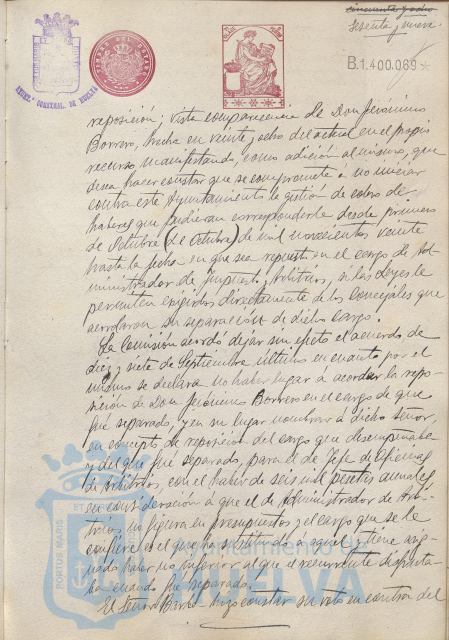 cincuenta y ocho
Sesenta y nueve
B.1.400.069
AYUNT. CONSTNAL. DE HUELVA
reposición; vista comparecencia de Don Jerónimo
Borrero, hecha en veintiocho del actual en el propio
recurso manifestando, como adición al mismo, que
desea hacer constar que se compromete a no iniciar
contra este Ayuntamiento la gestión de cobro de
haberes que pudieran corresponderle desde primero
de Octubre (de Octubre) de mil novecientos veinte
hasta la fecha en que sea repuesto en el cargo de Ad-
ministrador de Impuestos y Arbitrios, si las Leyes le
permiten exigirlos directamente de los Concejales que
acordaron su separación de dicho cargo.
La Comisión acordó dejar sin efecto el acuerdo de
diez y siete de Septiembre último en cuanto por el
mismo se declara no haber lugar á acordar la repo-
sición de Don Jerónimo Borrero en el cargo de que
fué separado, y en su lugar nombrar á dicho señor
en concepto de reposición del cargo que desempeñaba
y del que fué separado, para el de Jefe de Oficinas
de Arbitrios, con el haber de seis mil pesetas anuales,
en consideración á que el de Administrador de Arbi-
trios no figura en presupuestos y el cargo que se le
confiere es el que ha sustituido a aquel y tiene asig-
nado haber no inferior al que el recurrente disfruta-
ba cuando fué separado.
El Señor Barba hizo constar su voto en contra del
PORTUS MARIS ET
Ayuntamiento de
HUELVA